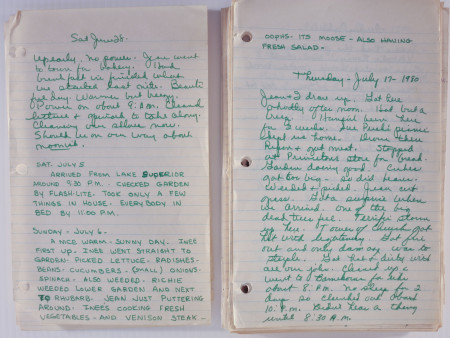 Sat June 28.
Up early. No power. Jean went
to town for bakery. Had
breakfast & finished what
we started last nite. Beauti-
ful day. Warmer but breezy.
Power on about 8 A.M. Cleaned
kitchen &
Cleaning van silver now.
Should be on our way about
SAT. JULY 5
ARRIVED FROM LAKE SUPERIOR
AROUND 9:30 P.M. CHECKED GARDEN
BY FLASH-LITE. TOOK ONLY A FEW
THINGS IN HOUSE. EVERYBODY IN
BED BY 11:00 P.M.
SUNDAY - JULY 6.
A NICE WARM - SUNNY DAY. INEE
FIRST UP - INES WENT STRAIGHT TO
GARDEN. PICKED LETTUCE. RADISHES.
BEANS. CUCUMBERS - (SMALL) ONIONS.
SPINACH. ALSO WEEDED - RICHIE
WEEDED LOWER GARDEN AND NEXT
TO RHUBARB. JEAN JUST PUTTERING
AROUND. INEES COOKING FRESH
VEGETABLES - AND VENISON STEAK -
OOPHS. ITS MOOSE - ALSO HAVING
FRESH SALAD -
Thursday - July 17 - 1980
Jean & I drove up. Got here
shortly after noon. Hot but a
breeze. Haven't been here
for 2 weeks. Sue
kept us home.
Ripon & opt must. Stopped
at Princeton store for bread.
Garden doing good. Cukes
got too big. So did beans.
Weeded & picked. Jean cut
grass. Got a surprise when
we arrived. One of the big
dead trees fell. Terrific storm
up here. Tower of church got
hit with lightning. Got fire
out and only damage was to
steeple. Got hot & dirty
our jobs. Cleaned up &
went to
about 8 P.M. No sleep for 2
days so climbed out about
10 P.M. Didn't hear a thing
until 8:30 A.M.